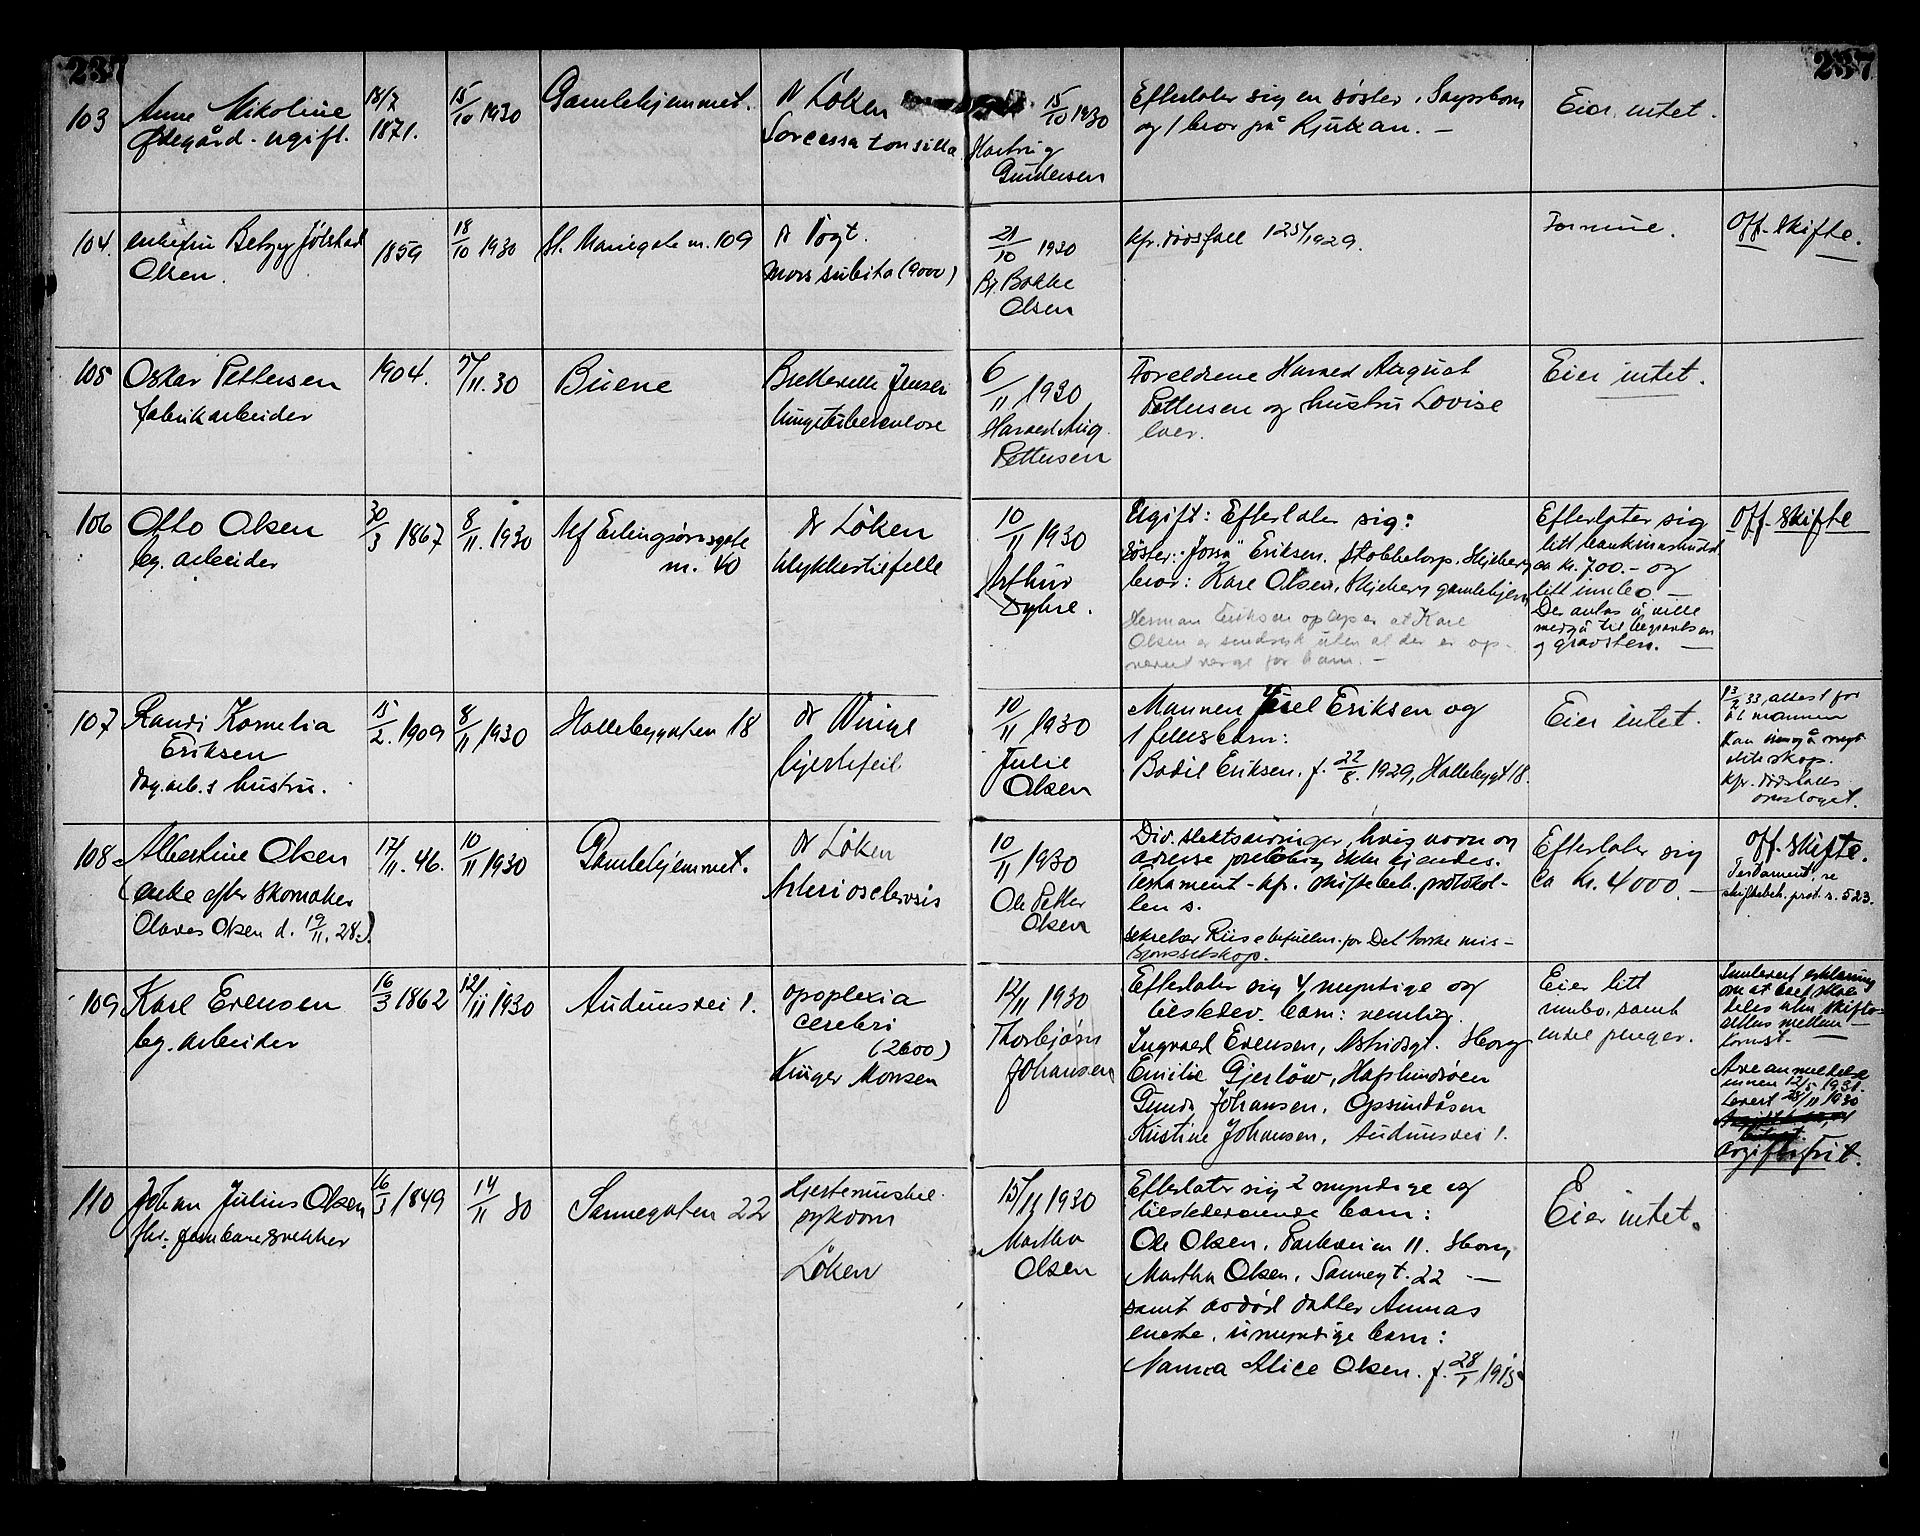 237
237
103
Anne Nikoline
Ødegård. ugift.
18/7
1871.
15/10 1930
Gamlehjemmet.
Dr Løken
tonsilla
15/10 1930
Gundersen
Efterlater sig en søster, Sarpsborg
og 1 bror på Rjukan. —
Eier intet.
104.
enkefru Betzy Jølstad
Olsen.
1859
18/10 1930
St. Mariegate nr. 109
Dr Vogt.
mors subita (9000)
21/10 1930
Br. Bakke
Olsen
kfr. dødsfall 125/1929.
Formue.
Off. skifte.
105
Oskar Pettersen
fabrikarbeider
1904.
5/11. 30
Buene
Jensen
lungetuberkulose
6/11 1930
Harald Aug.
Pettersen
Foreldrene Harald August
Pettersen og hustru Lovise
lever.
Eier intet.
106
Otto Olsen
bg. arbeider
30/3 1867
8/11. 1930
Alf Erlingsønsgate
nr. 40
Dr Løken
ulykkestilfelle
10/11 1930
Arthur
Dybre.
Ugift: Efterlater sig:
søster: "Jossa" Eriksen, Skjeberg
bror: Karl Olsen, Skjeberg gamlehjem
Herman Eriksen oplyser at Karl
Olsen er sindssyk uten at der er op-
nevnt verge for ham. —
Efterlater sig
litt bankinnskudd
ca kr. 700.- og
litt innbo —
Det antas å ville
medgå til begravelsen
og gravsten. —
Off. skifte
107
Randi Kornelia
Eriksen
dag.arb.s hustru.
15/2. 1909
8/11 1930
Hallebygaten 18
Dr Winge
hjertefeil
10/11 1930
Julie
Olsen
Mannen Eriksen og
1 fellesbarn:
Bodil Eriksen. f. 22/8. 1929, Hallebygt 18.
Eier intet.
33, attest for
at mannen
kan inngå nytt
ekteskap.
kfr. dødsfalls
108
Albertine Olsen
(enke efter skomaker
Olaves Olsen d. 19/11. 28.)
17/11. 46.
10/11 1930
Gamlehjemmet.
Dr Løken
Arteriosclerosis
10/11 1930
Ole Petter
Olsen
Div. slektninger, hvis navn og
adresse foreløbig ikke kjendes.
Testament - kfr. skiftebeh. protokol-
len s.
sekretær Riise befullm. for Det norske mis-
sjonsselskap.
Efterlater sig
ca kr. 4000. —
Off. skifte.
Testament, se
skiftebeh. prot. s. 523.
109
Karl Evensen
bg. arbeider
16/3 1862
12/11 1930
Audunsvei 1.
apoplexia
cerebri
(2600)
Krüger Monsen
12/11 1930
Thorbjørn
Johansen
Efterlater sig 4 myndige og
tilstedev. barn: nemlig.
Ingvald Evensen, Astridsgt. Sborg
Emilie Gjerløw, Hafslundsøen
Gunda Johansen, Opsundåsen
Kristine Johansen, Audunsvei 1.
Eier litt
innbo, samt
endel penger.
Innlevert erklæring
om at boet skal
deles uten skifte-
rettens mellem-
komst.
Arveanmeldelse
innen 12/5 1931.
Levert 28/11 1930
avgiftsfrit.
110
Johan Julius Olsen
fhv. jernbanesvekker
16/3 1849
14/11 30
Sannegaten 22
Hjertemuskel
sykdom
Løken
15/11 1930
Martha
Olsen
Efterlater sig 2 myndige og
tilstedeværende barn:
Ole Olsen, Parkveien 11. Sborg
Martha Olsen, Sannegt. 22 —
samt avdød datter Annas
eneste, umyndige barn:
Nanna Alice Olsen. f. 28/1 1915
Eier intet.